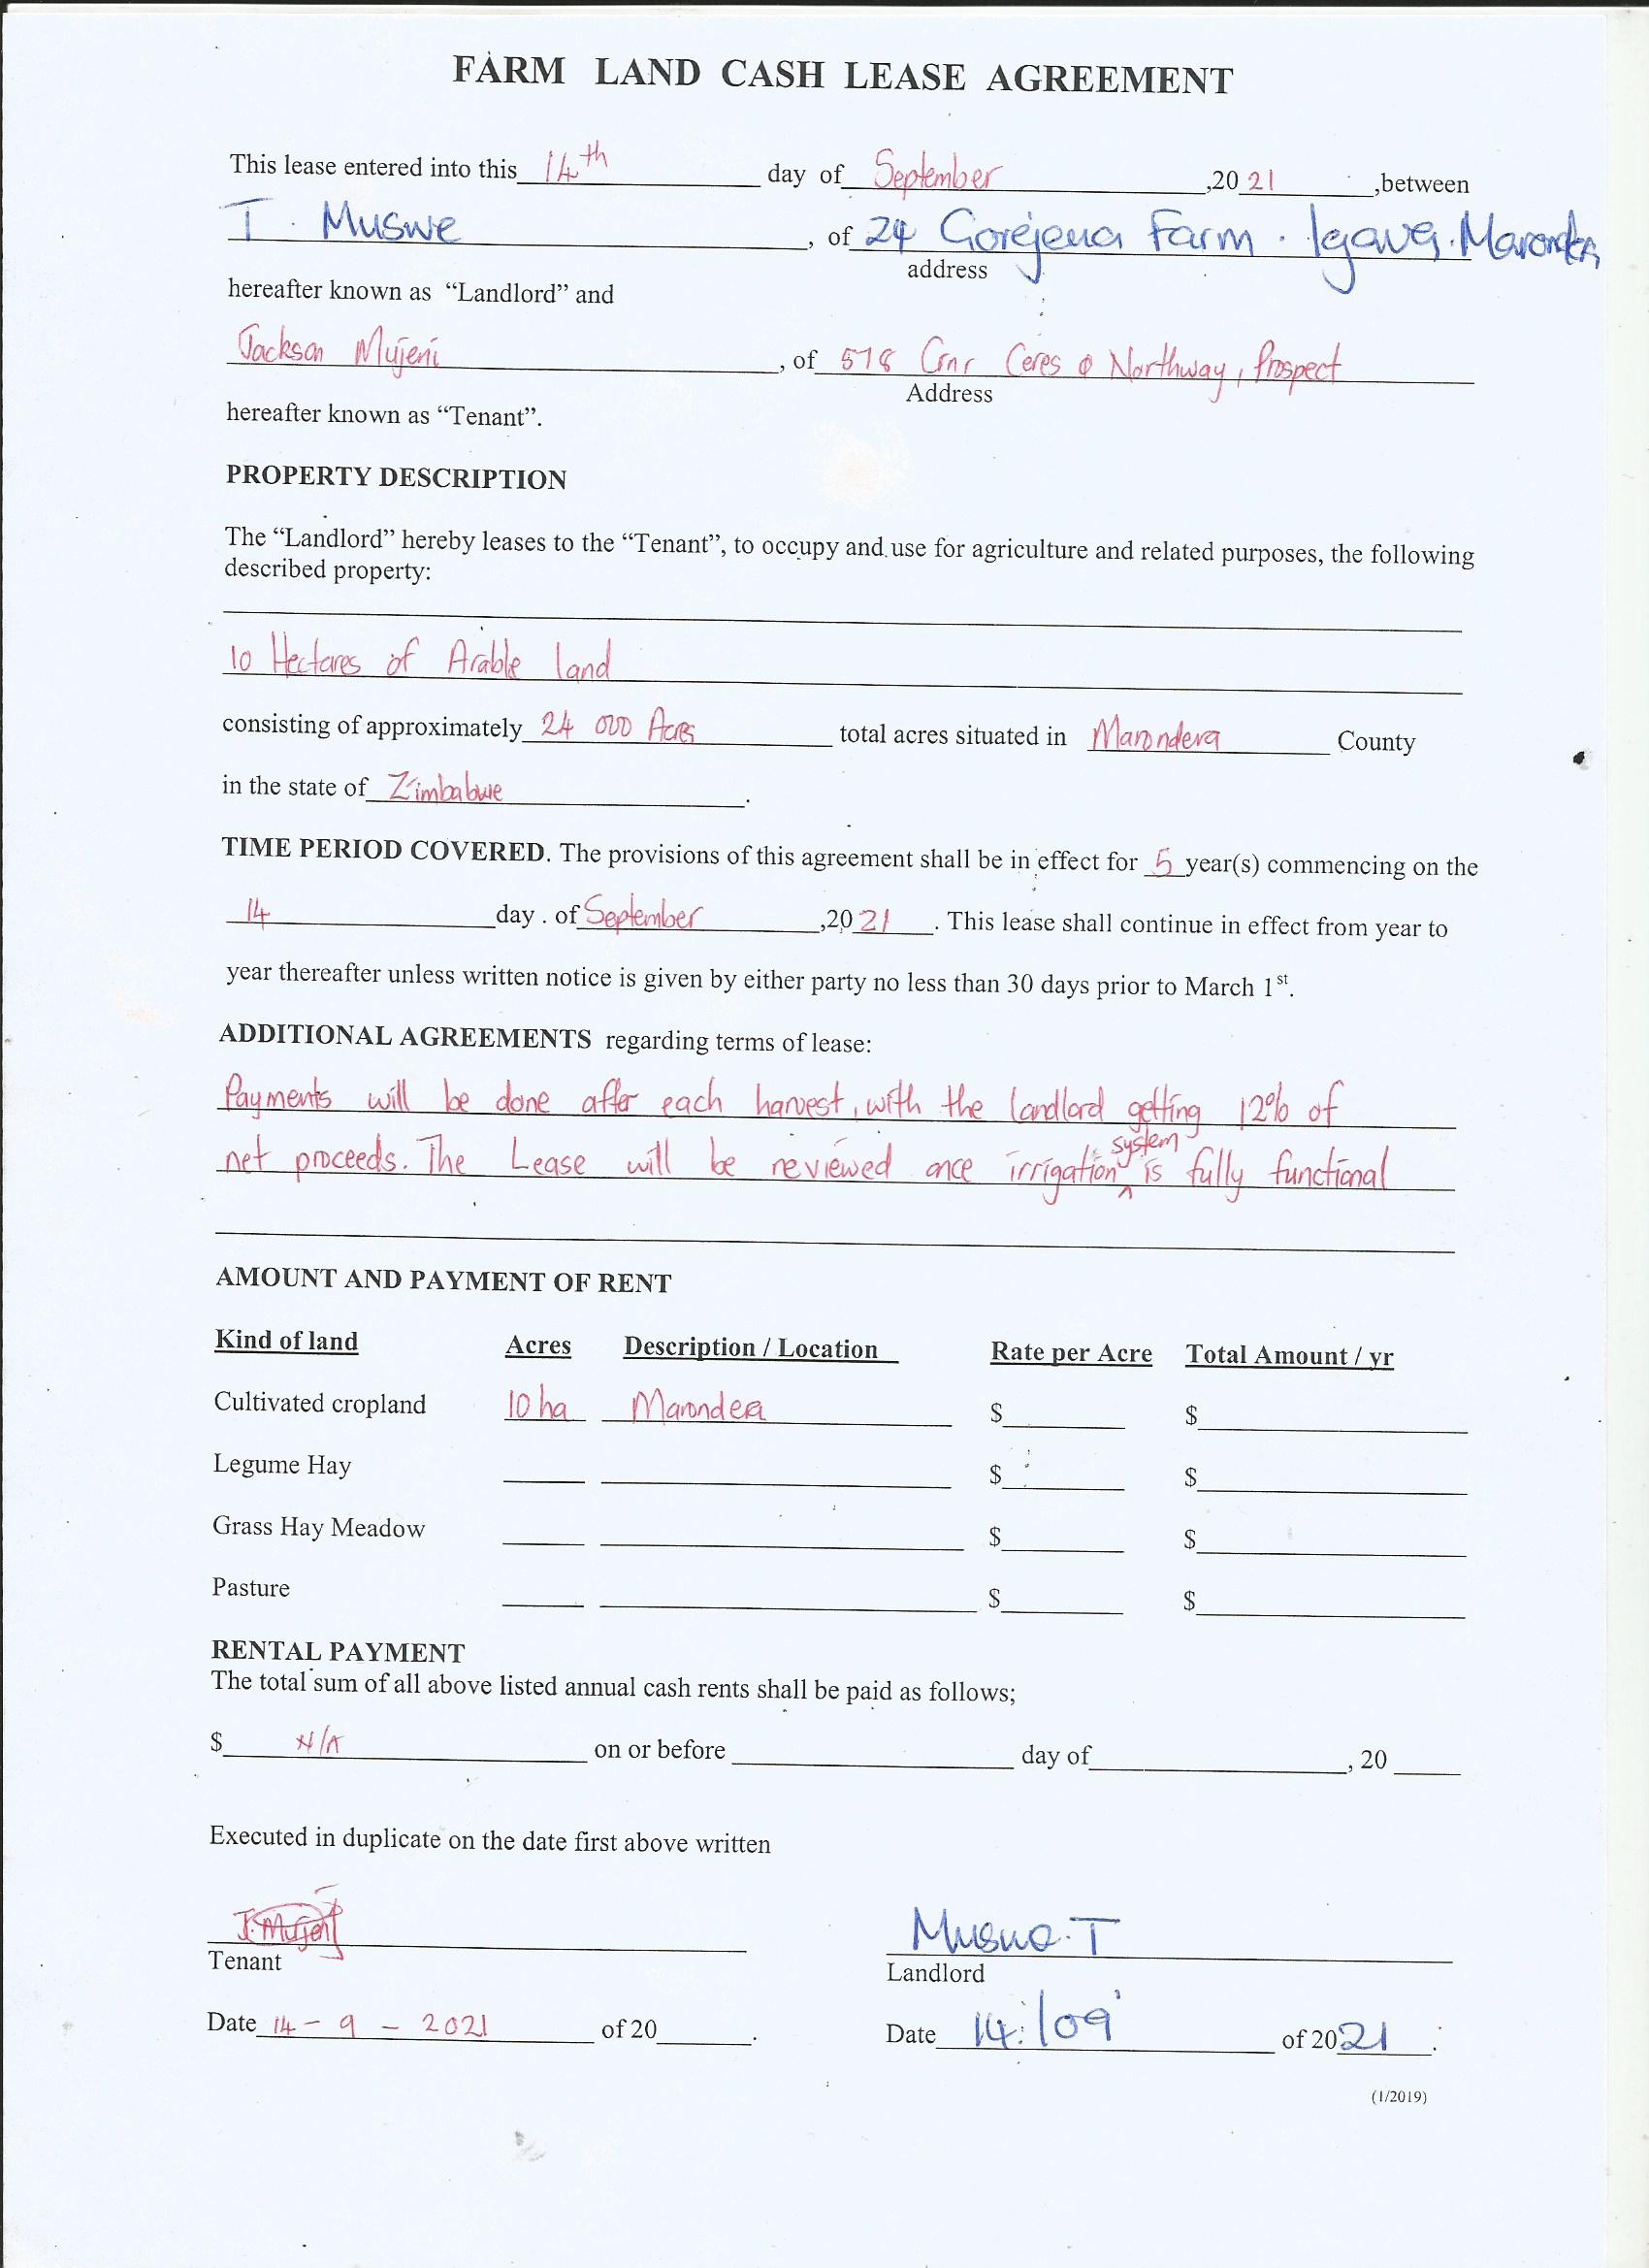 FARM LAND CASH LEASE AGREEMENT
This lease entered into this 14th day of September ,20 21 ,between
T. Muswe , of 24 Gorejena Farm. Igava, Marondera
address
hereafter known as "Landlord" and
Jackson Mujeni , of 578 Crnr Ceres & Northway, Prospect
Address
hereafter known as "Tenant".
PROPERTY DESCRIPTION
The "Landlord" hereby leases to the "Tenant", to occupy and use for agriculture and related purposes, the following
described property:
10 Hectares of Arable land
consisting of approximately 24 000 Acres total acres situated in Marondera County
in the state of Zimbabwe .
TIME PERIOD COVERED. The provisions of this agreement shall be in effect for 5 year(s) commencing on the
14 day . of September ,20 21 . This lease shall continue in effect from year to
year thereafter unless written notice is given by either party no less than 30 days prior to March 1st.
ADDITIONAL AGREEMENTS regarding terms of lease:
Payments will be done after each harvest, with the landlord getting 12% of
net proceeds. The Lease will be reviewed once irrigation system is fully functional
AMOUNT AND PAYMENT OF RENT
Kind of land Acres Description / Location Rate per Acre Total Amount / yr
Cultivated cropland 10 ha Marondera $ $
Legume Hay $ $
Grass Hay Meadow $ $
Pasture $ $
RENTAL PAYMENT
The total sum of all above listed annual cash rents shall be paid as follows;
$ N/A on or before day of , 20
Executed in duplicate on the date first above written
J. Mujeni Muswe. T
Tenant Landlord
Date 14 - 9 - 2021 of 20 . Date 14/09 of 2021 .
(1/2019)